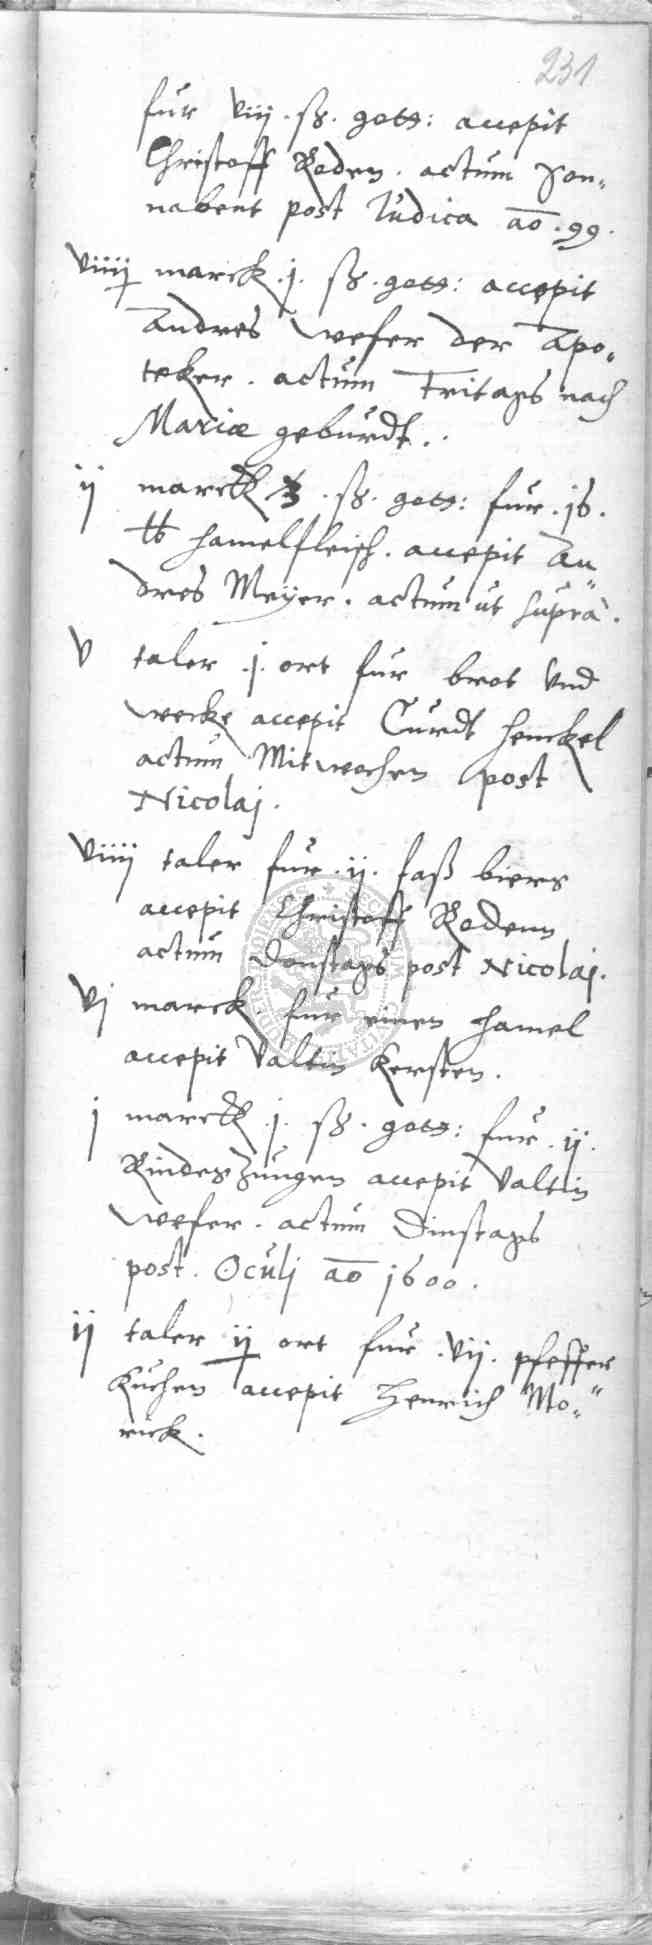 231
fur viij . ß . gotts: accepit
Christoff Roden . actum Son„
nabent post Iudica ao . 99 .
viiij marck . j . ß . gotts: accepit
Andres Wefer der Apo„
teker . actum Fritags nach
Mariæ geburdt .
ij marck 3 . ß . gotts: fur . 16 .
℔ hamelfleisch . accepit An„
dres Meÿer . actum ut supra .
v taler . j . ort fur brot vnd
wecke accepit Curdt Henckel
actum Mitwochen post
Nicolaj .
viiij taler fur . ij . faß biers
accepit Christoff Rodenn
actum Donstags post Nicolaj .
vj marck . fur einen hamel
accepit Valtin Kersten .
j marck . j . ß . gotts: fur . ij .
Rinderzungen accepit Valtin
Wefer . actum Dinstags
post . Oculj ao 1600 .
ij taler ij ort fur . vij . pfeffer„
kuchen accepit Henrich Mo„
rick .